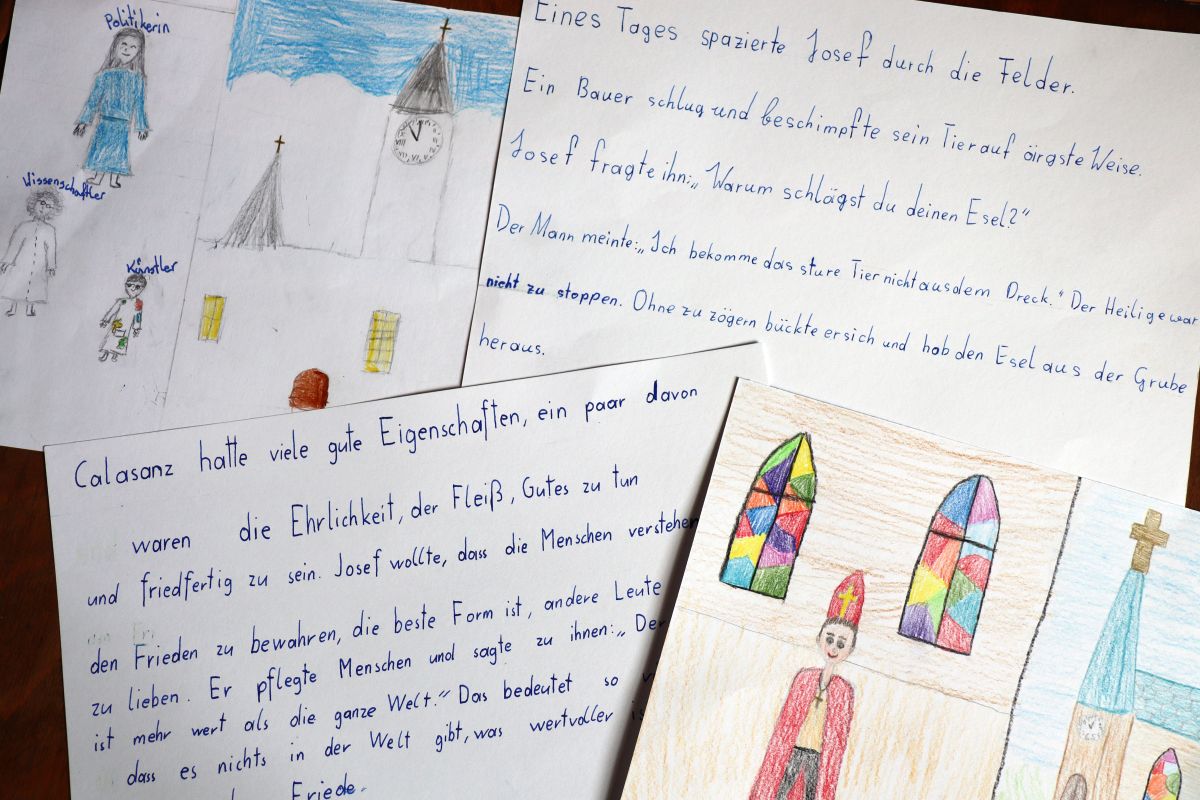 Politikerin
Wissenschaftler
Künstler
Eines Tages spazierte Josef durch die Felder.
Ein Bauer schlug und beschimpfte sein Tier auf ärgste Weise.
Josef fragte ihn: „Warum schlägst du deinen Esel?“
Der Mann meinte: „Ich bekomme das sture Tier nicht aus dem Dreck.“ Der Heilige war
nicht zu stoppen. Ohne zu zögern bückte er sich und hob den Esel aus der Grube
heraus.
Calasanz hatte viele gute Eigenschaften, ein paar davon
waren die Ehrlichkeit, der Fleiß, Gutes zu tun
und friedfertig zu sein. Josef wollte, dass die Menschen verstehen
den Frieden zu bewahren, die beste Form ist, andere Leute
zu lieben. Er pflegte Menschen und sagte zu ihnen: „Der
ist mehr wert als die ganze Welt.“ Das bedeutet so
dass es nichts in der Welt gibt, was wertvoller
Friede.